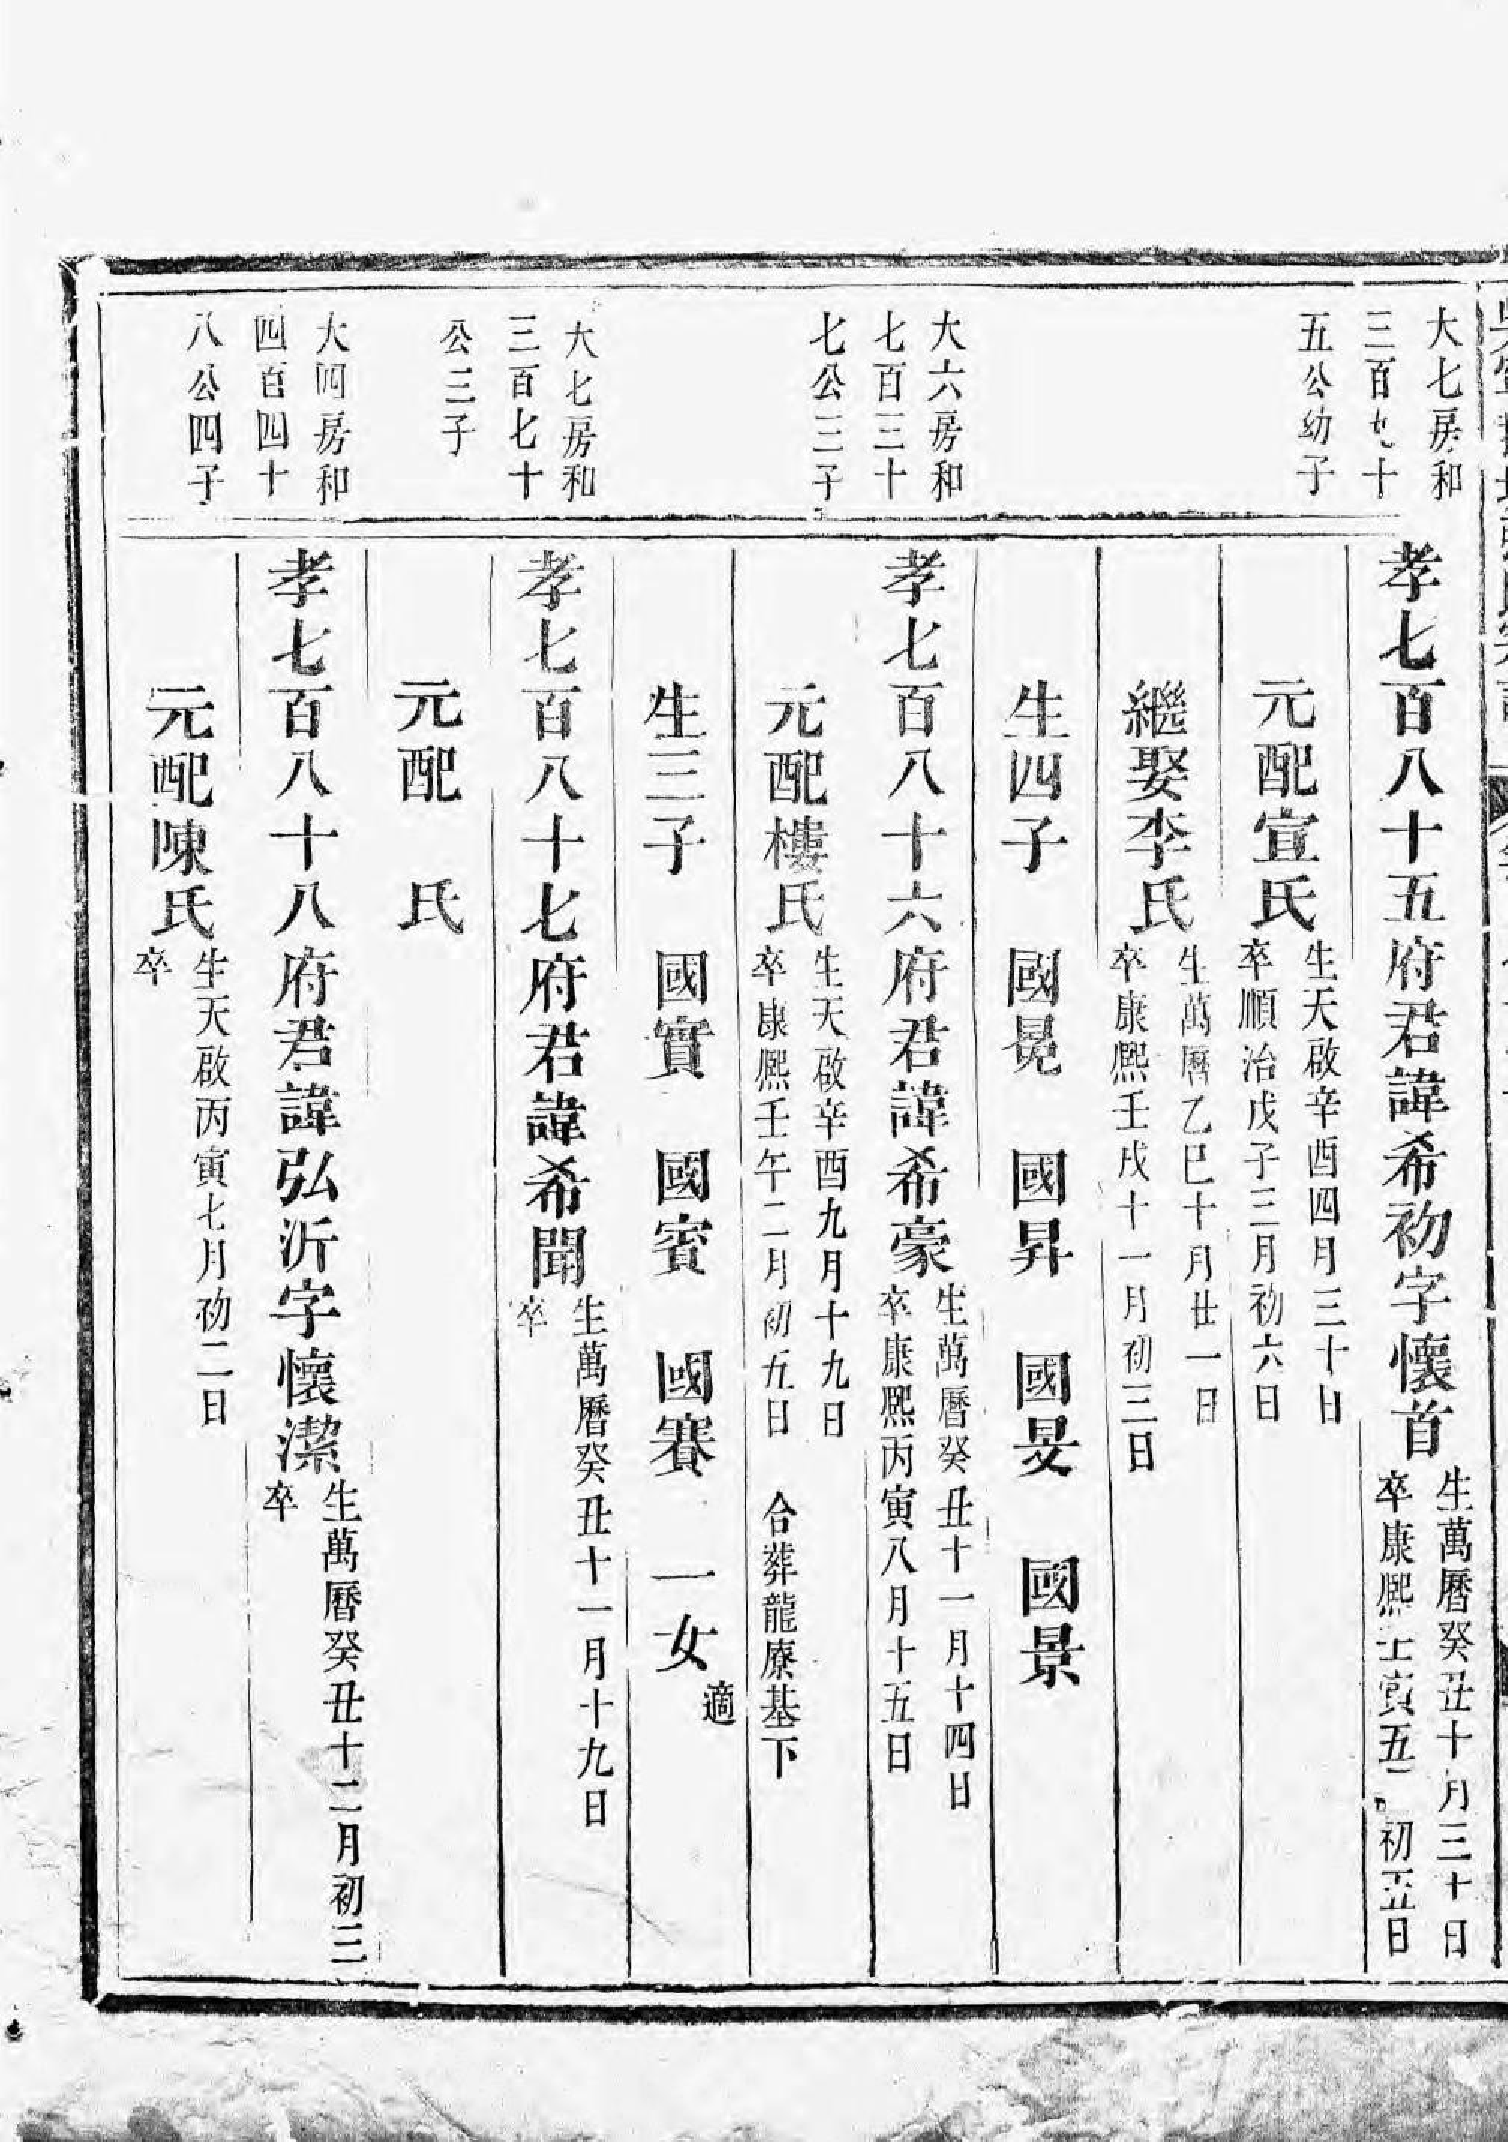 大七房和
三百九十
五公幼子
孝七百八十五府君諱希初字懷首
生萬曆癸丑十月三十日
卒康熙壬寅五月初五日
元配宣氏
生天啟辛酉四月三十日
卒順治戊子三月初六日
繼娶李氏
生萬曆乙巳十月廿一日
卒康熙壬戌十一月初三日
生四子 國晃 國昇 國旻 國景
大六房和
七百三十
七公三子
孝七百八十六府君諱希豪
生萬曆癸丑十一月十四日
卒康熙丙寅八月十五日
元配樓氏
生天啟辛酉九月十九日
卒康熙壬午二月初五日
合葬龍廖基下
生三子 國實 國賓 國賽 一女
適
大七房和
三百七十
公三子
孝七百八十七府君諱希聞
生萬曆癸丑十一月十九日
卒
元配 氏
大四房和
四百四十
八公四子
孝七百八十八府君諱弘沂字懷潔
生萬曆癸丑十二月初三
卒
元配陳氏
生天啟丙寅七月初二日
卒